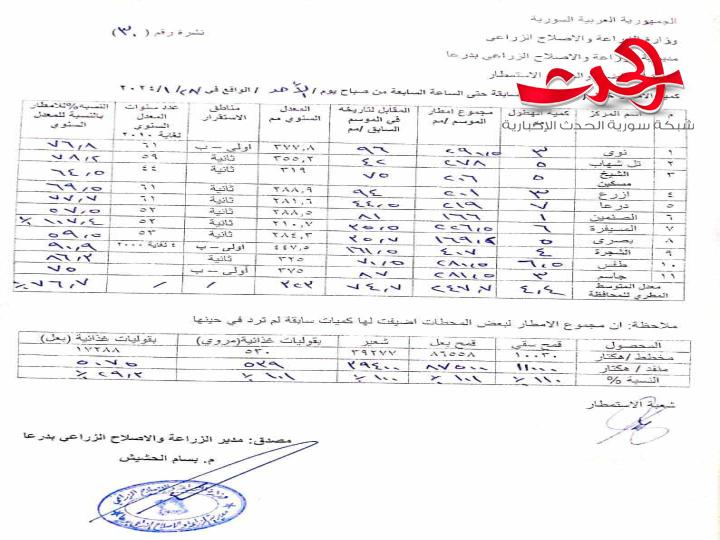 الجمهورية العربية السورية
نشرة رقم ( ٣٠ )
وزارة الزراعة والاصلاح الزراعي
الزراعة والاصلاح الزراعي بدرعا
الاستمطار
الحدث
شبكة سورية الحدث الإخبارية
سابقة حتى الساعة السابعة من صباح يوم / الأحد / الواقع في ٢٠٢٤/١/٢٨
م اسم المركز كمية الهطول مجموع امطار الموسم /مم المقابل لتاريخه في الموسم السابق /مم المعدل السنوي مم مناطق الاستقرار عدد سنوات المعدل السنوي لغاية ٢٠١٠ النسبة%للأمطار بالنسبة للمعدل السنوي
١ نوى ٣ ٢٩٠,٥ ٩٦ ٣٧٧,٨ اولى – ب ٦١ ٧٦,٨
٢ تل شهاب ٥ ٢٧٨ ٤٢ ٣٥٥,٢ ثانية ٥٩ ٧٨,٢
٣ الشيخ مسكين ٥ ٢٠٦ ٧٥ ٣١٩ ثانية ٤٤ ٦٤,٥
٤ ازرع ٣ ٢٠١ ٩٤ ٢٨٨,٩ ثانية ٦١ ٦٩,٥
٥ درعا ٧ ٢١٩ ٤٤,٥ ٢٨١,٦ ثانية ٦١ ٧٧,٧
٦ الصنمين ١ ١٦٦ ٨١ ٢٨٨,٥ ثانية ٥٢ ٥٧,٥
٧ المسيفرة ٦ ٢٢٦,٥ ٣٥,٥ ٢١٠,٧ ثانية ٥٢ ١٠٧,٤ ٪
٨ بصرى ٥ ٣٥,٧ ٢٨٤,٣ ثانية ٥٣ ٥٩,٥
٩ الشجرة ٤ ٤٠٧ ١٦١,٥ ٤٤٧,٥ اولى – ب ٤ لغاية ٢٠٠٠ ٩٠,٩
١٠ طفس ٦,٥ ٢٨٠,٥ ٧٠,٥ ٣٢٥ ثانية ٨٦,٣
١١ جاسم ٣ ٢٨١,٥ ٨٧ ٣٧٥ اولى – ب ٧٥
معدل المتوسط المطري للمحافظة ٤,٤ ٢٤٧,٧ ٧٤,٧ ٣٢٣ / / ٪٧٦,٧
ملاحظة: ان مجموع الامطار لبعض المحطات اضيفت لها كميات سابقة لم ترد في حينها
المحصول قمح سقي قمح بعل شعير بقوليات غذائية(مروي) بقوليات غذائية (بعل)
مخطط /هكتار ١٠٠٣٠ ٨٦٥٥٨ ٣٩٢٧٧ ٥٣٠ ١٧٢٨٨
منفذ / هكتار ١١٠٠٠ ٨٧٥٠٠ ٣٩٤٠٠ ٥٣٩ ٥٠٧٥
النسبة % ١١٠ ٪ ١٠١ ٪ ١٠٠ ٪ ١٠١ ٪ ٢٩,٣ ٪
شعبة الاستمطار
مصدق: مدير الزراعة والاصلاح الزراعي بدرعا
م. بسام الحشيش